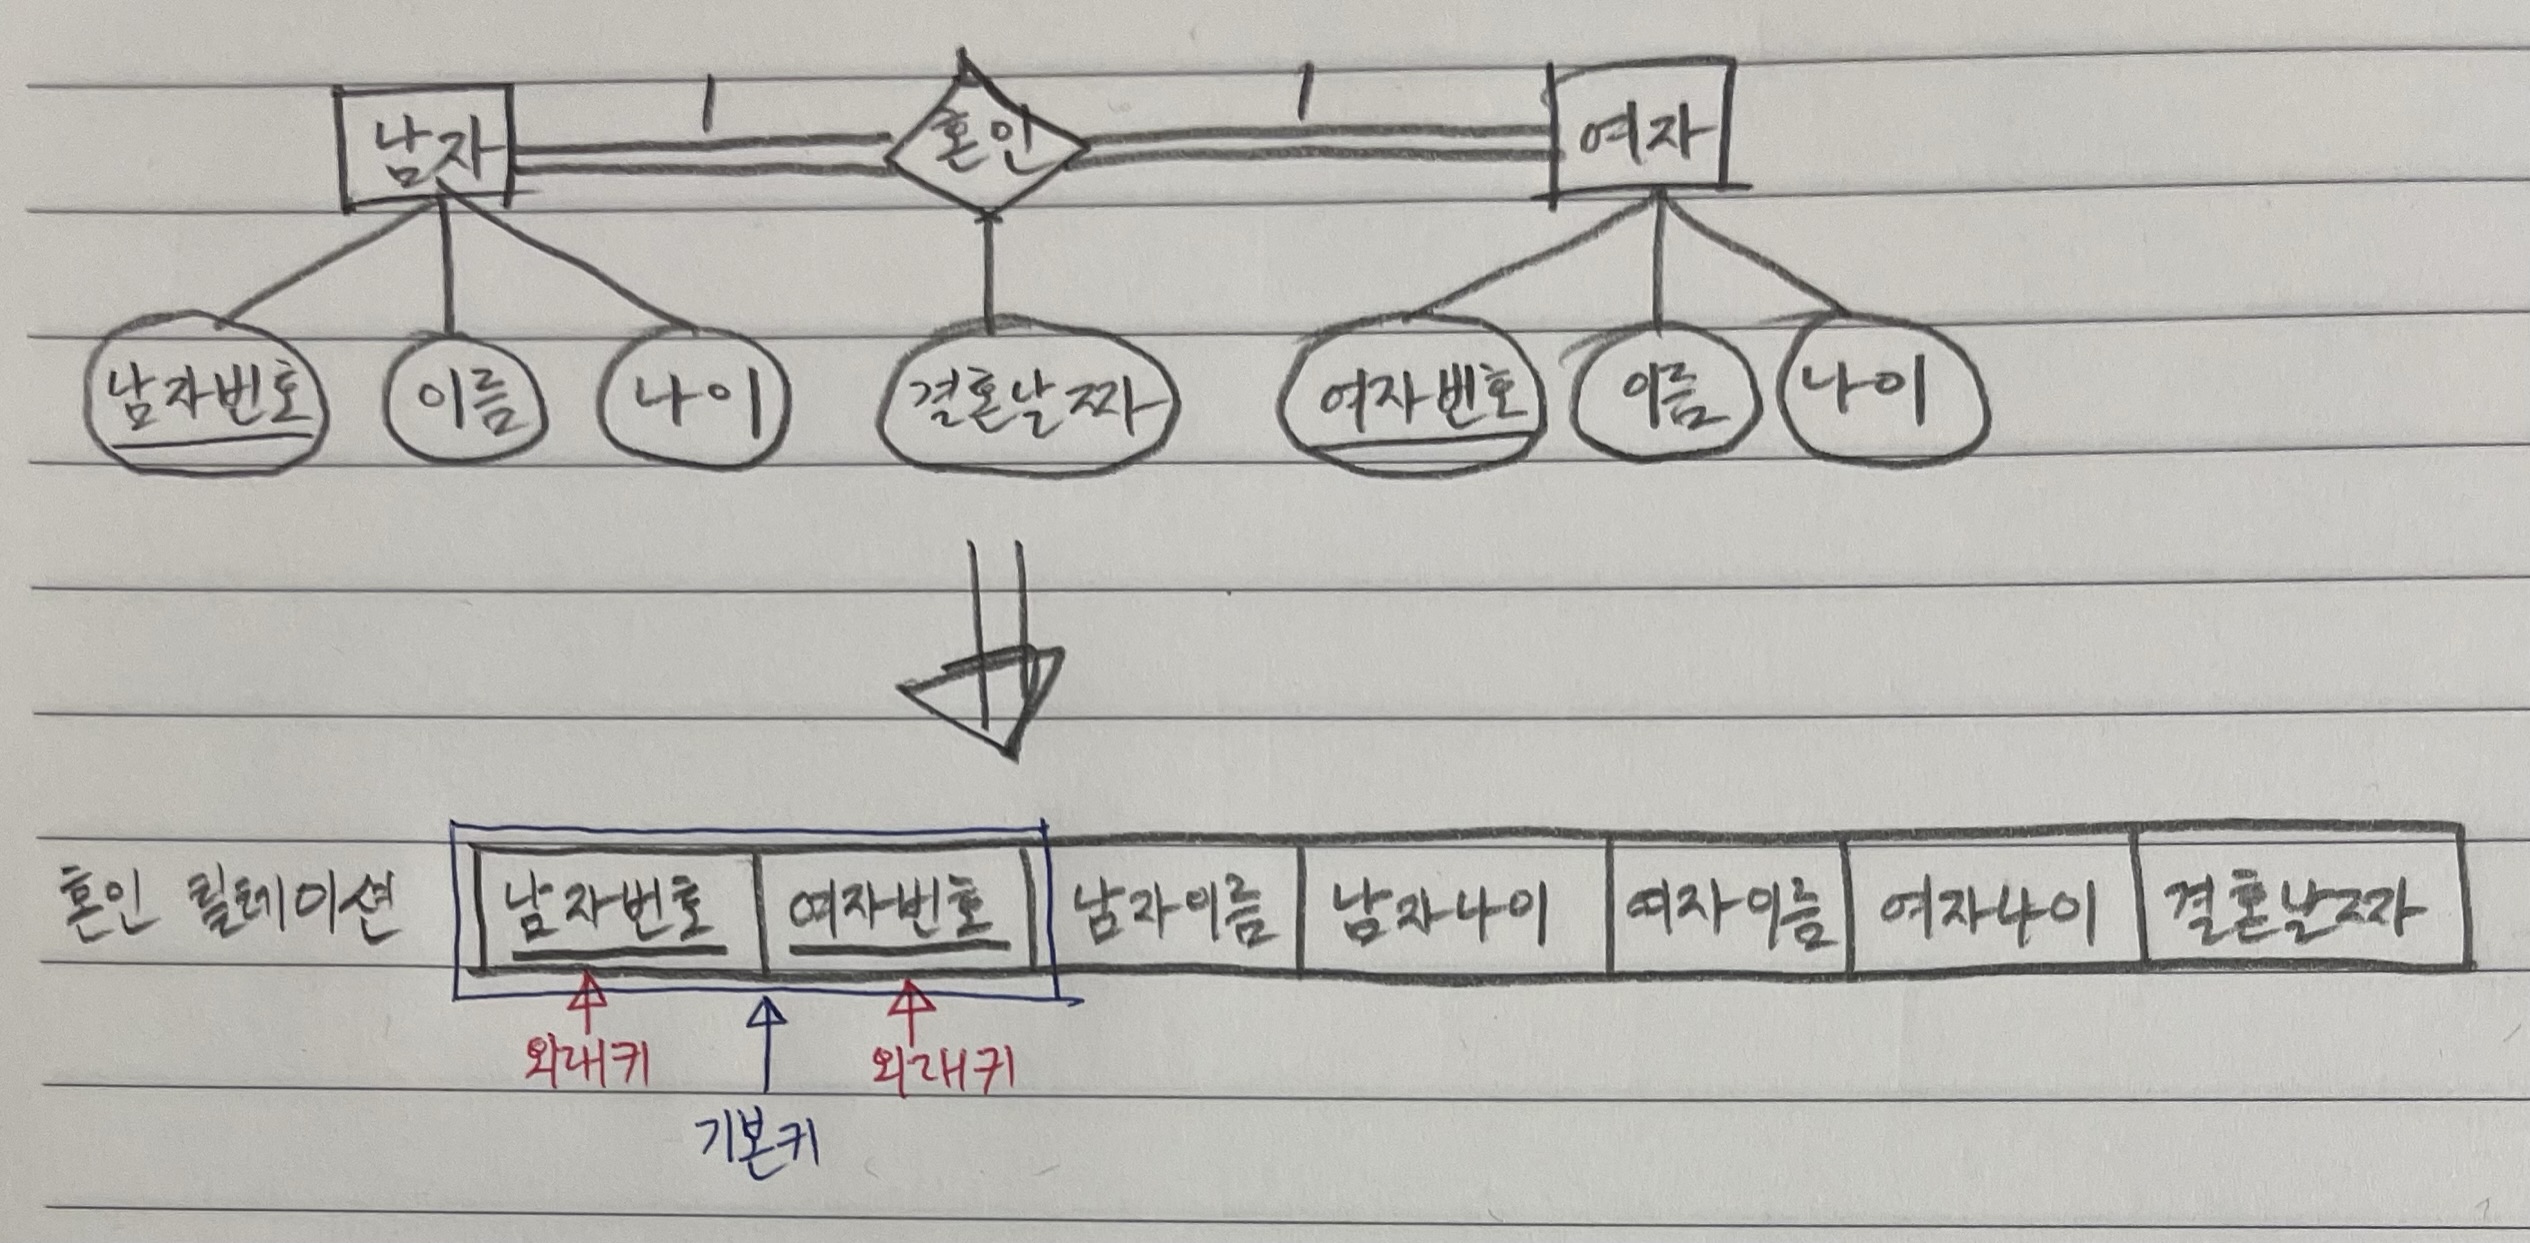 남자 1 혼인 1 여자
남자번호 이름 나이 결혼날짜 여자번호 이름 나이
혼인 릴레이션 남자번호 여자번호 남자이름 남자나이 여자이름 여자나이 결혼날짜
외래키 외래키
기본키